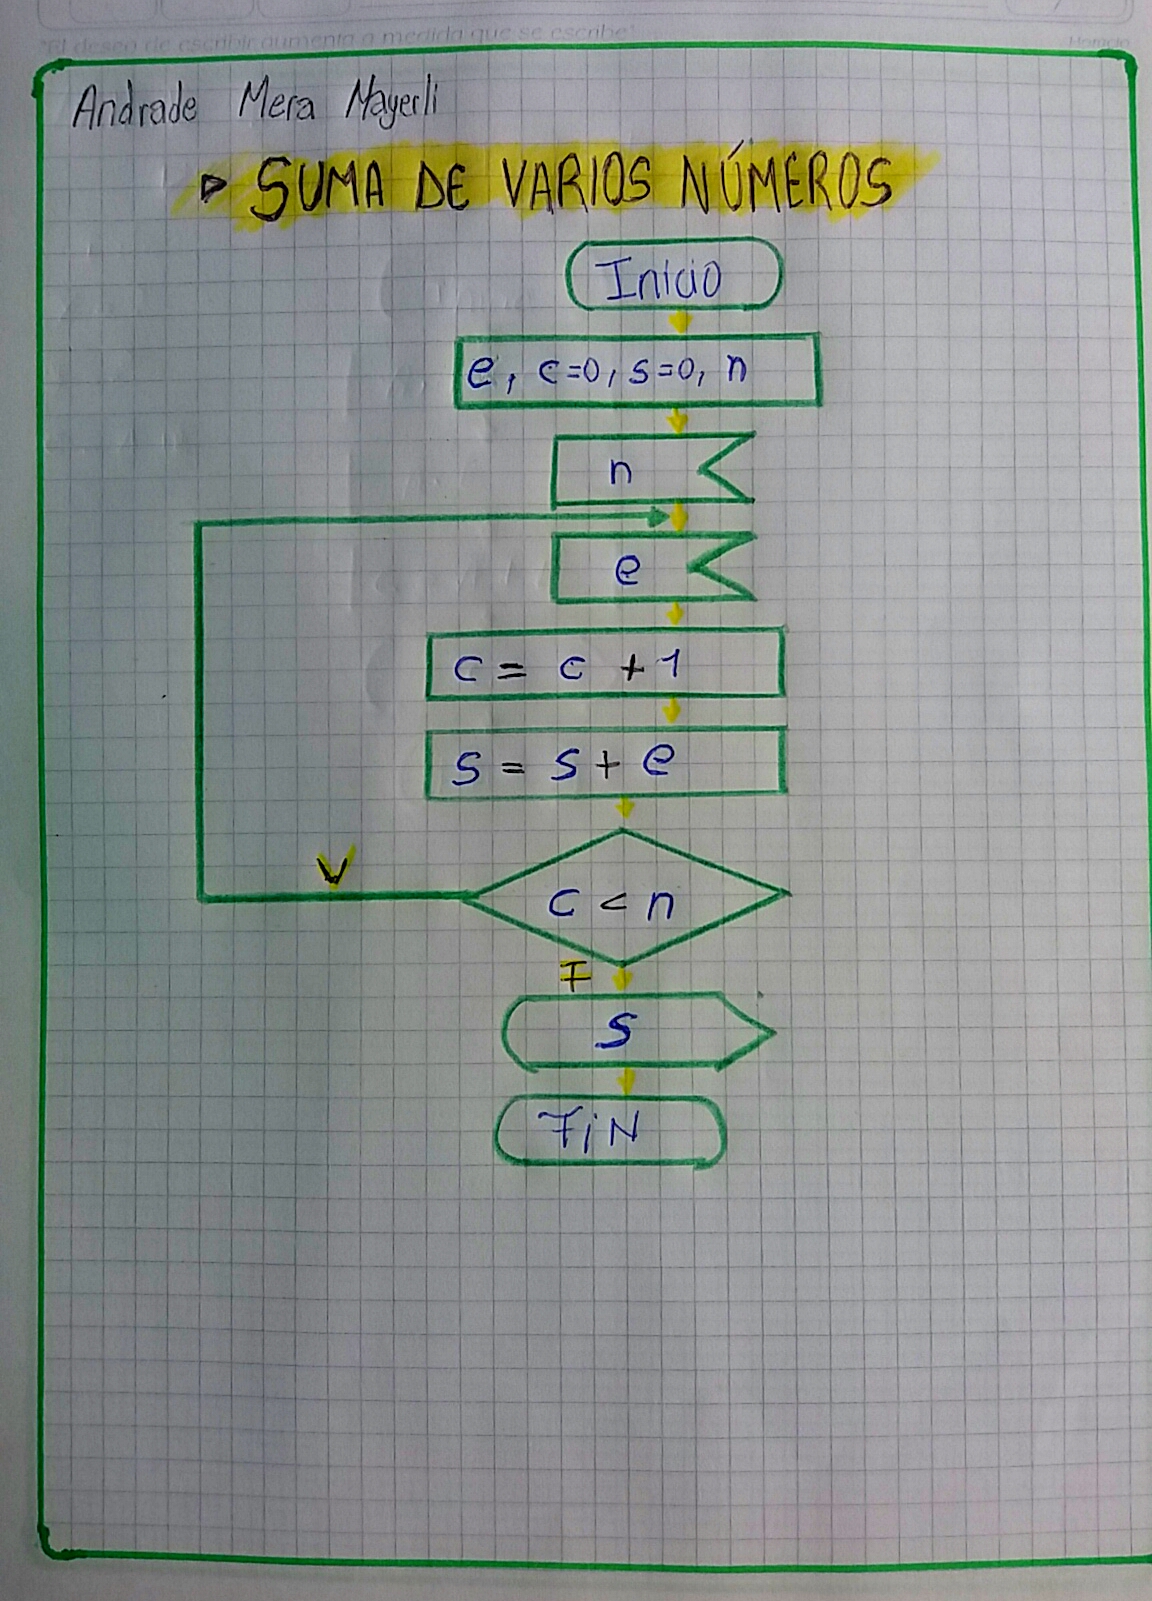 "El deseo de escribir aumenta a medida que se escribe"
Andrade Mera Mayerli
SUMA DE VARIOS NÚMEROS
Inicio
e, c=0, s=0, n
n
e
c = c + 1
s = s + e
V
c < n
F
s
FiN